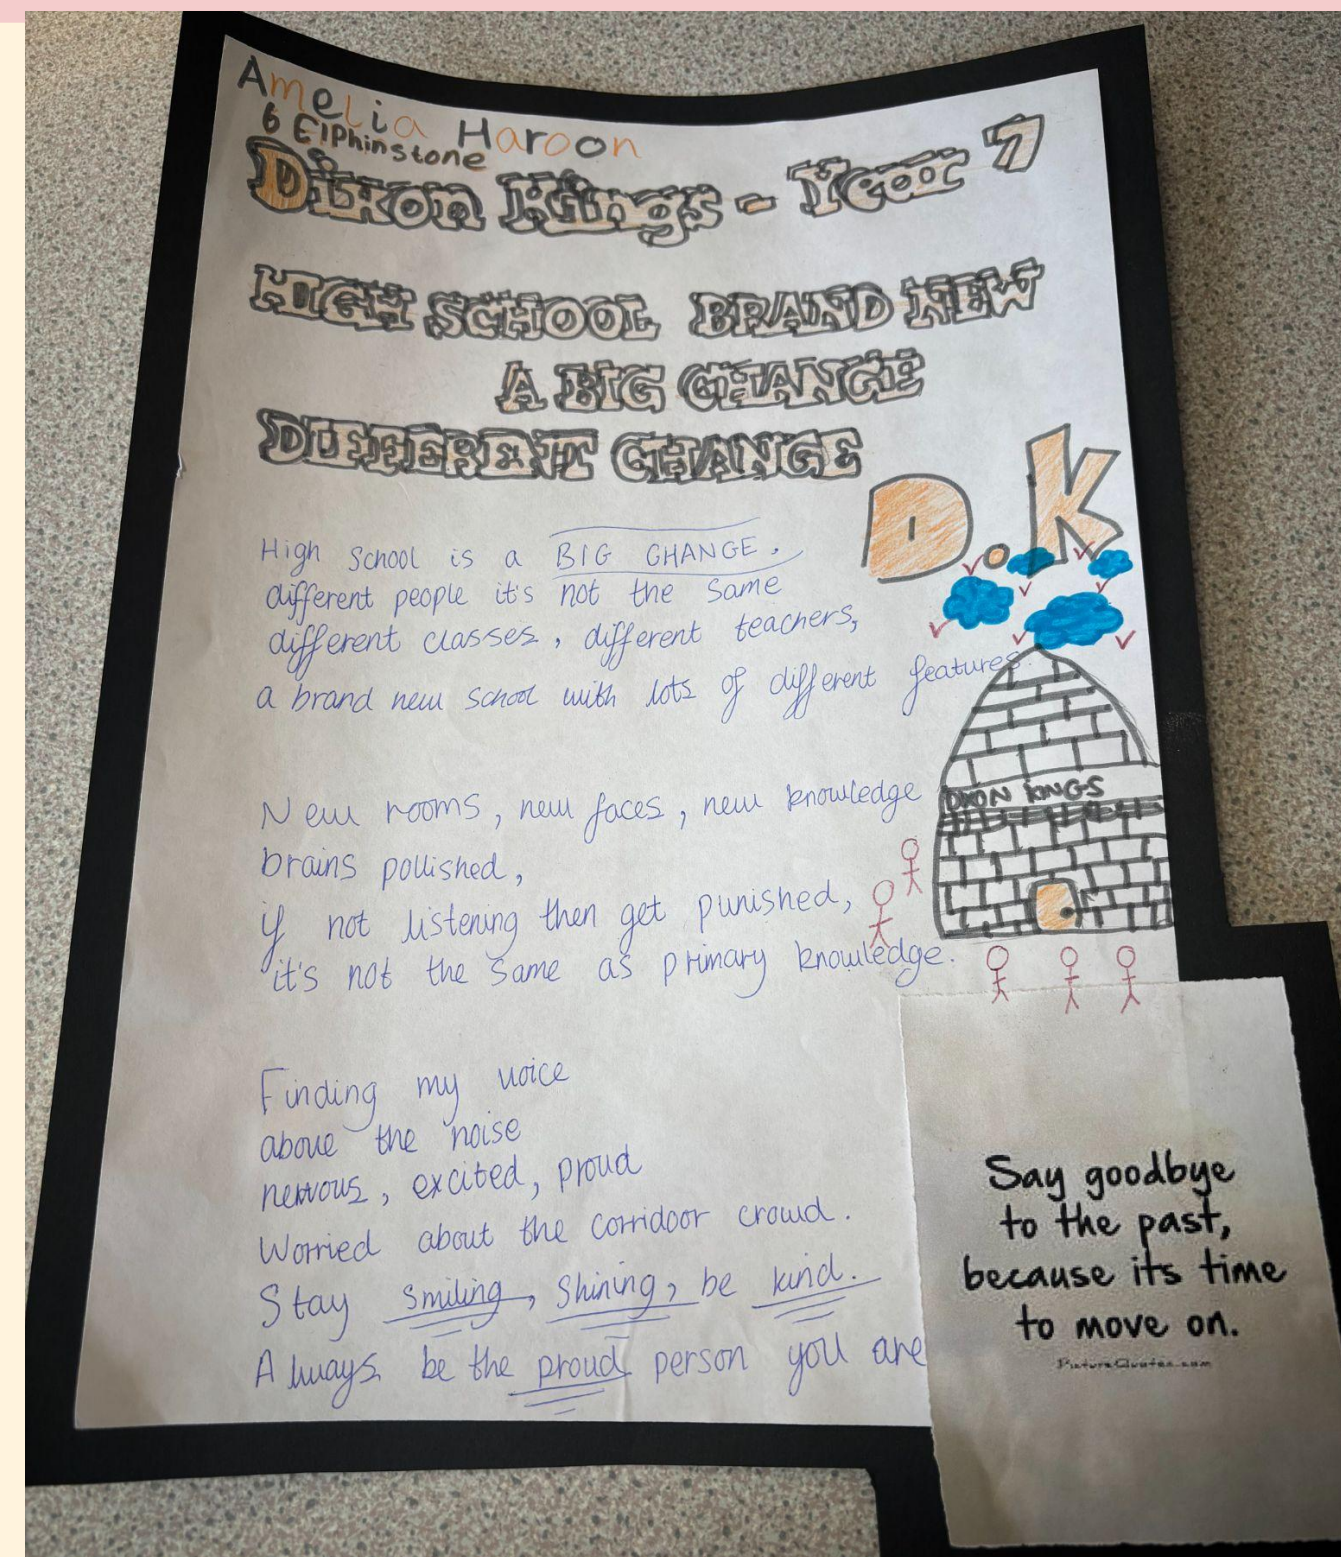 Amelia Haroon
6 Elphinstone
Dixon Kings - Year 7
HIGH SCHOOL BRAND NEW
A BIG CHANGE
DIFFERENT CHANGE
D.K
High School is a BIG CHANGE.
different people it's not the same
different classes, different teachers,
a brand new school with lots of different features.
New rooms, new faces, new knowledge
brains pollished,
if not listening then get punished,
it's not the same as primary knowledge.
DIXON KINGS
Finding my voice
above the noise
nervous, excited, proud
Worried about the corridoor crowd.
Stay smiling, shining, be kind.
Always be the proud person you are
Say goodbye
to the past,
because its time
to move on.
PictureQuotes.com